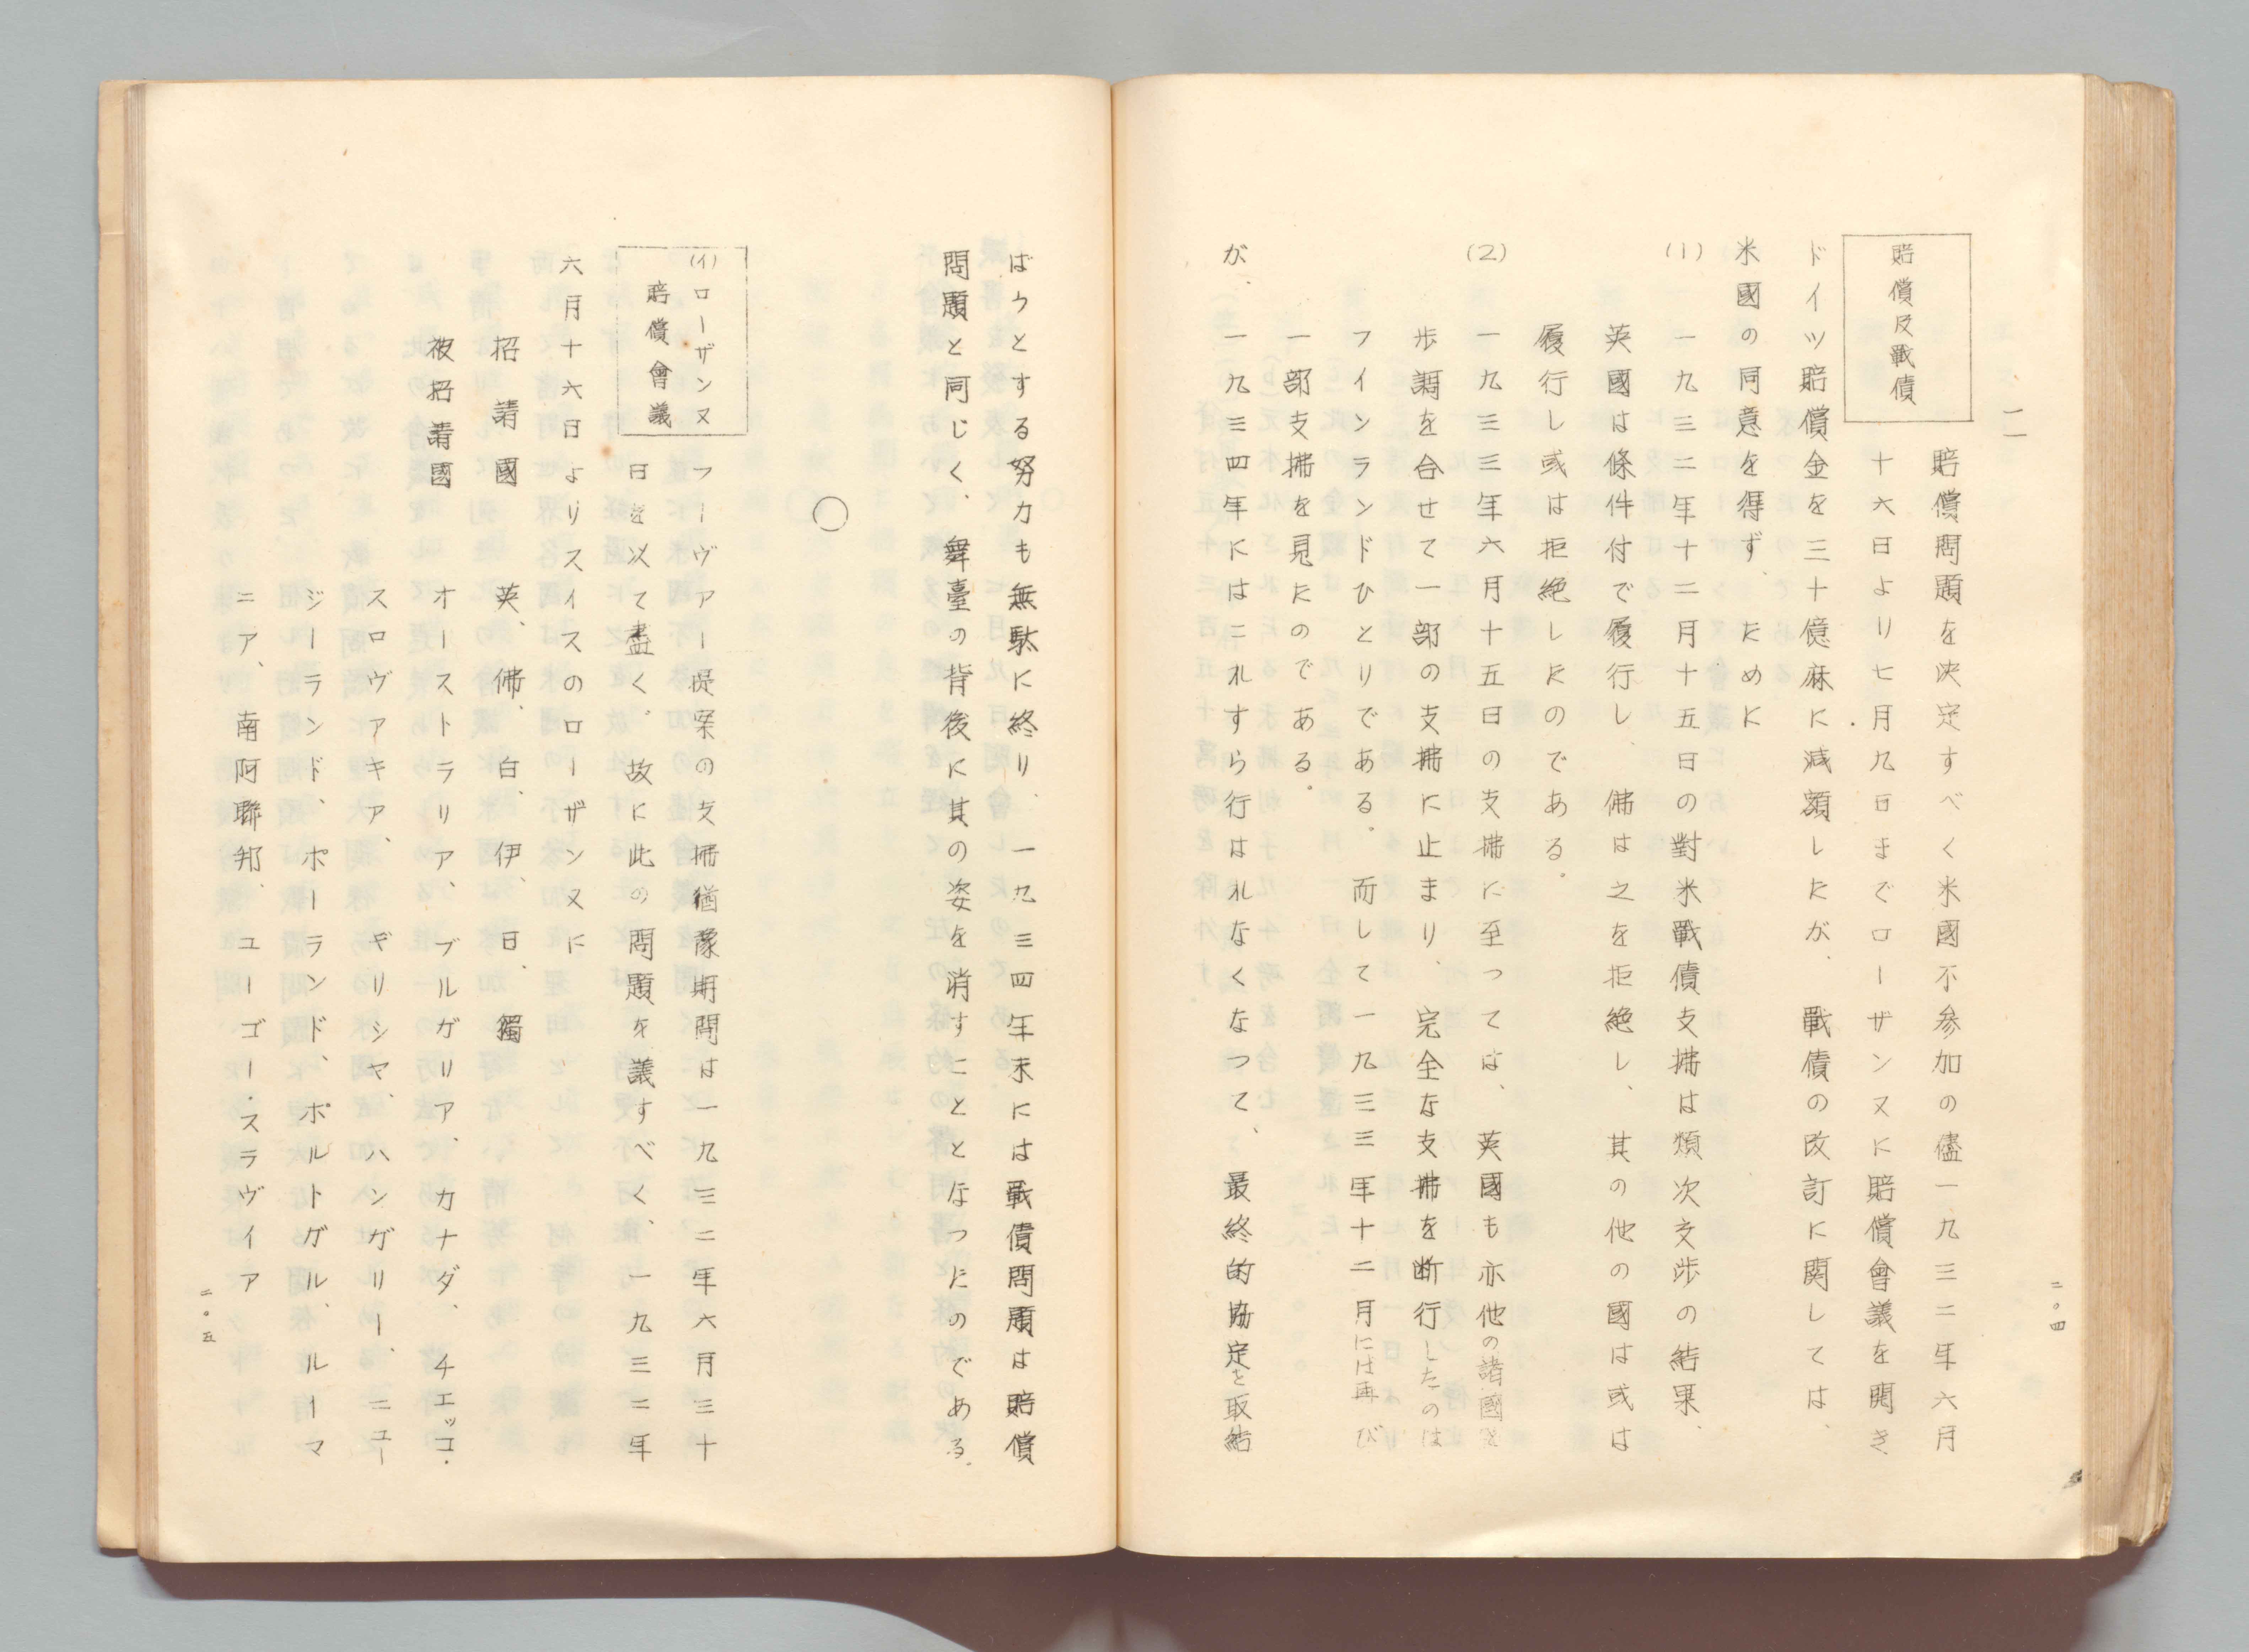 二
賠償及戰債
賠償問題を決定すべく米國不参加の儘一九三二年六月
十六日より七月九日までローザンヌに賠償會議を開き
ドイツ賠償金を三十億麻に減額したが、戰債の改訂に関しては、
米國の同意を得ず、ために
(1) 一九三二年十二月十五日の對米戰債支拂は煩次交渉の結果、
英國は條件付で履行し、佛は之を拒絶し、其の他の國は或は
履行し或は拒絶したのである。
(2) 一九三三年六月十五日の支拂に至つては、英國も亦他の諸國と
歩調を合せて一部の支拂に止まり、完全な支拂を断行したのは
フインランドひとりである。而して一九三三年十二月には再び
一部支拂を見たのである。
が、一九三四年にはこれすら行はれなくなつて、最終的協定を取結
二〇四
ばうとする努力も無駄に終り、一九三四年末には戰債問題は賠償
問題と同じく、舞臺の背後に其の姿を消すこととなつたのである。
○
(イ)ローザンヌ
賠償會議
フーヴァー提案の支拂猶豫期間は一九三二年六月三十
日を以て盡く。故に此の問題を議すべく、一九三二年
六月十六日よりスイスのローザンヌに
招請國 英、佛、白、伊、日、獨
被招請國 オーストラリア、ブルガリア、カナダ、チエッコ・
スロヴアキア、ギリシヤ、ハンガリー、ニュー
ジーランド、ポーランド、ポルトガル、ルーマ
ニア、南阿聯邦、ユーゴー・スラヴイア
二〇五